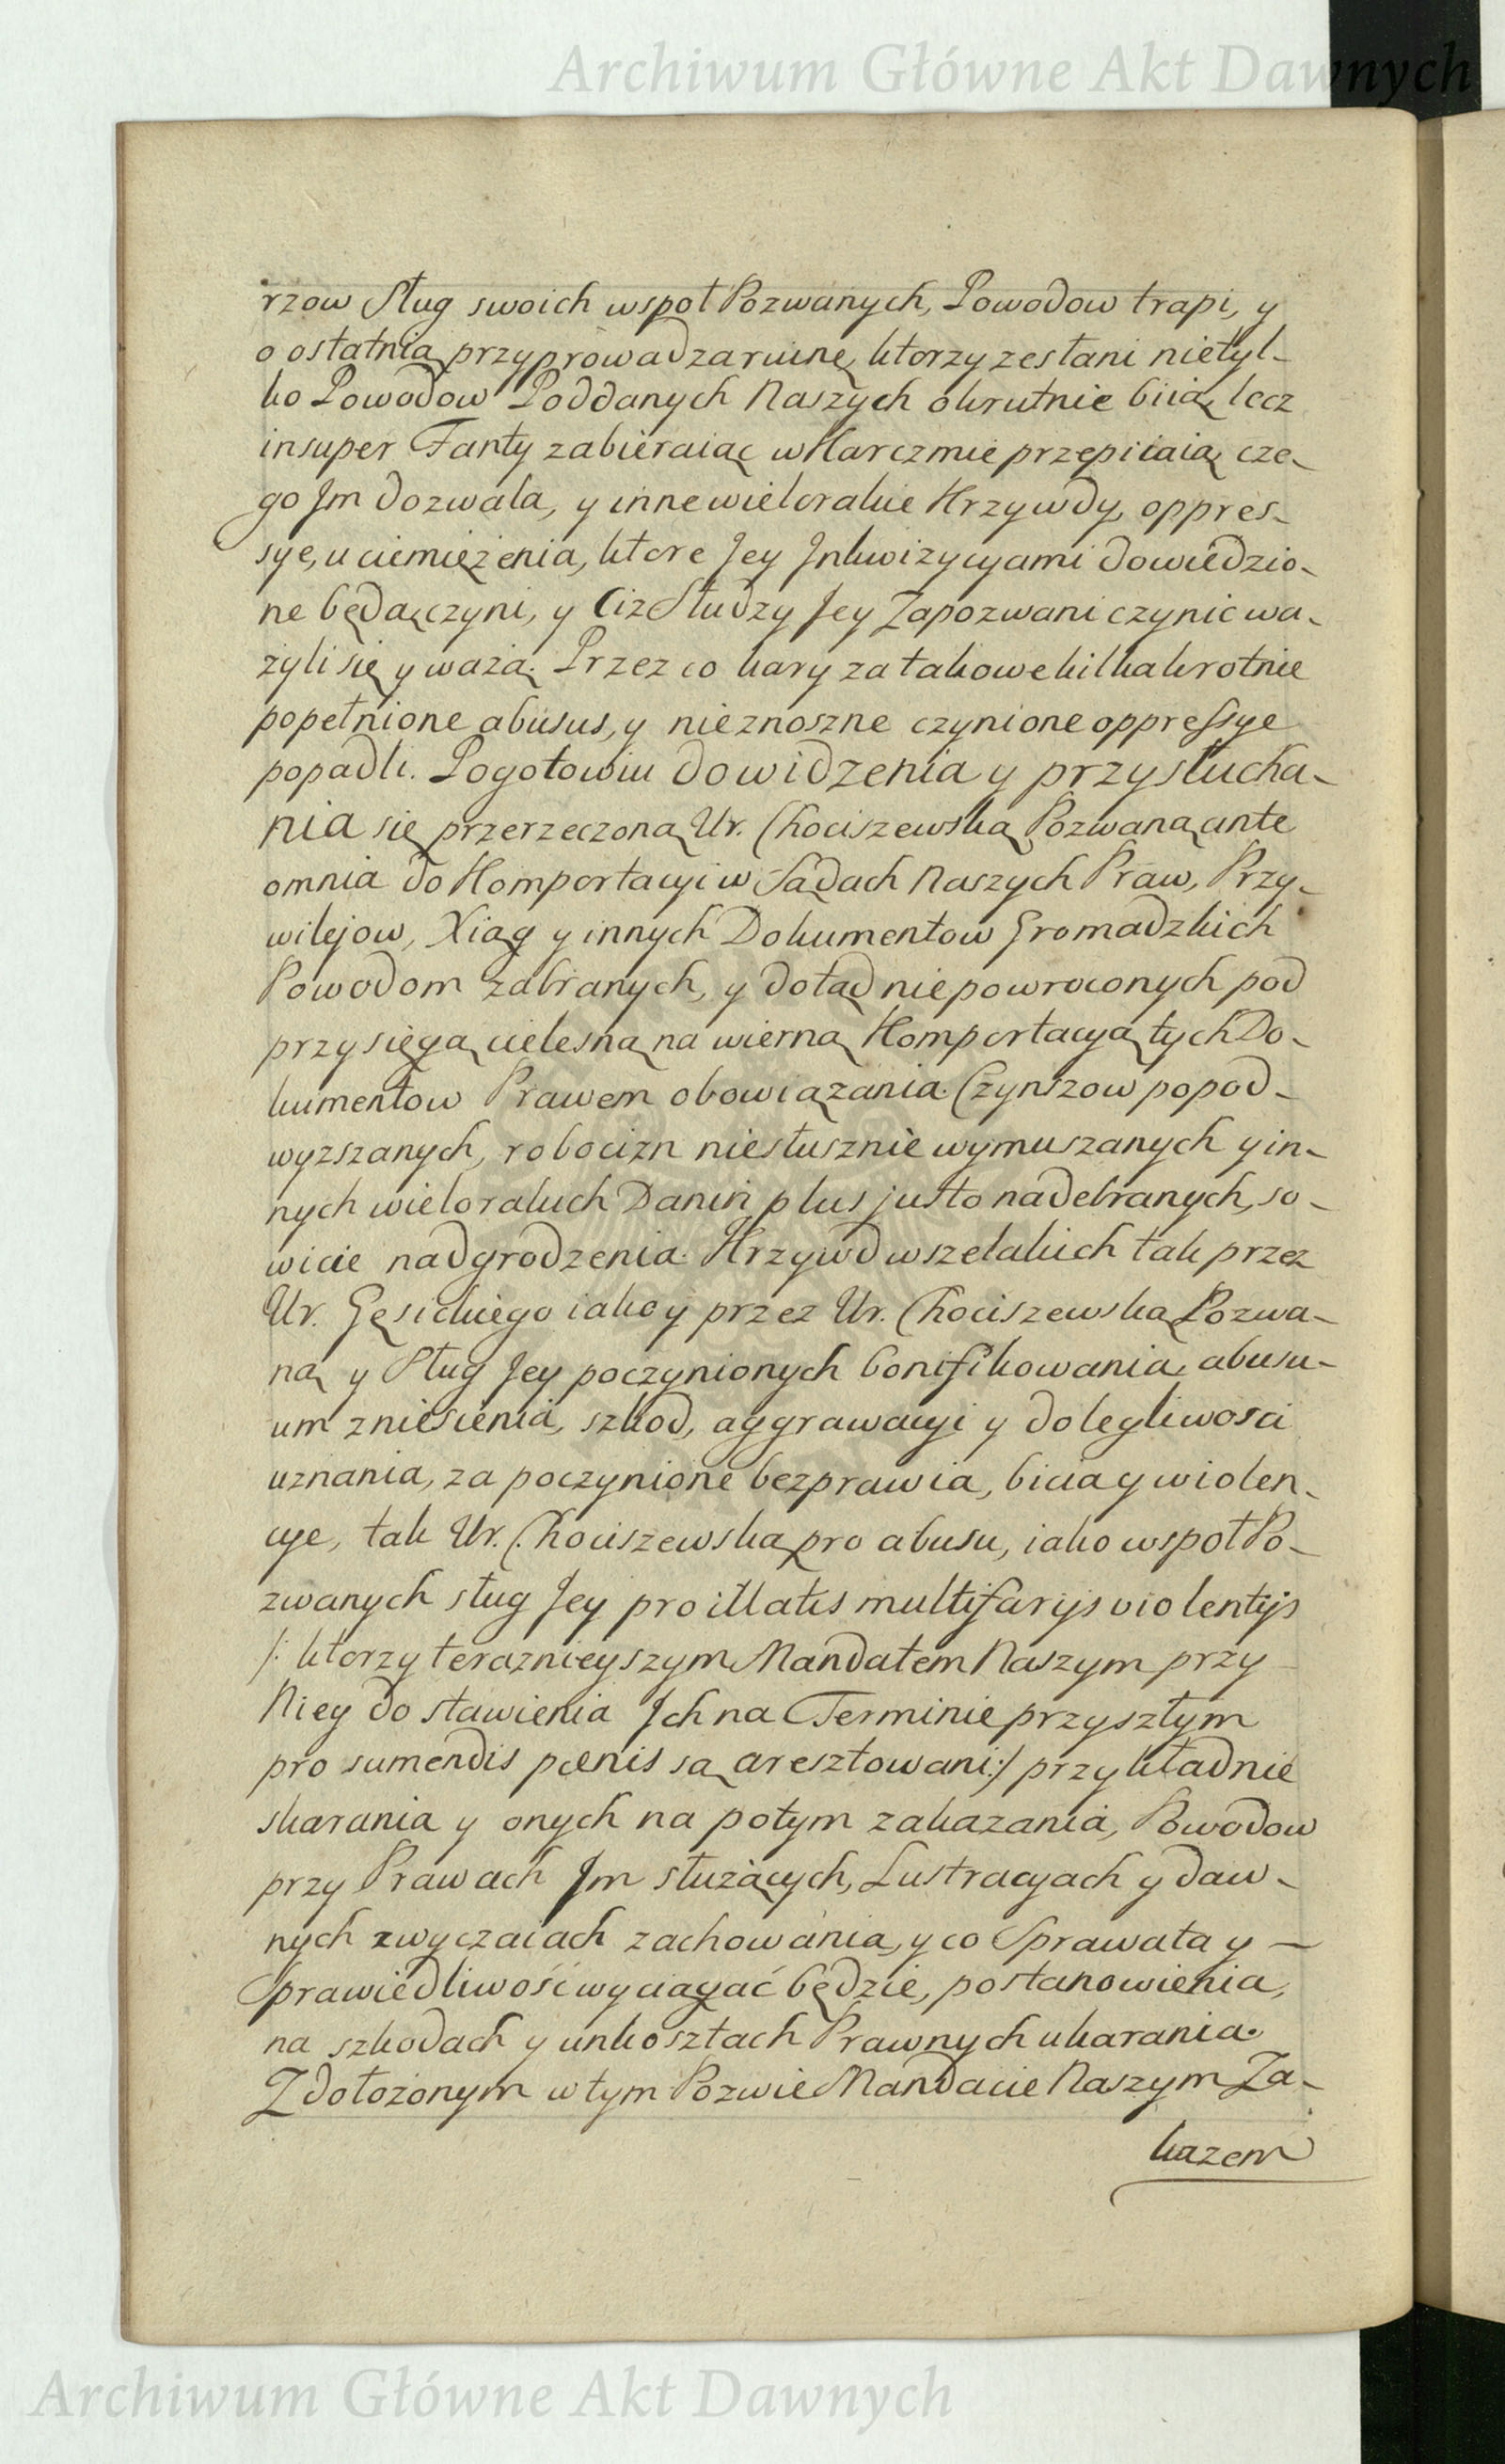 Archiwum Główne Akt Dawnych
rzow Sług swoich wspoł Pozwanych, Powodow trapi, y
o ostatnią przyprowadza ruinę, ktorzy zesłani nietyl-
ko Powodow Poddanych Naszych okrutnie biią, lecz
insuper Fanty zabieraiąc w Karczmie przepiiaią, cze-
go Im dozwala, y inne wielorakie Krzywdy, oppres-
sye, uciemiężenia, ktore Jey Inkwizycyami dowiedzio-
ne będą, czyni, y Ciz Słudzy Jey Zapozwani czynic wa-
żyli się y ważą. Przez co kary za takowe kilkakrotnie
popełnione abusus, y nieznoszne czynione oppressye
popadli. Pogotowiu do widzenia y przysłucha-
nia się przerzeczoną Ur. Chociszewską Pozwaną ante
omnia do Komportacyi w Sądach Naszych Praw, Przy-
wilejow, Xiąg y innych Dokumentow Gromadzkich
Powodom zabranych, y dotąd niepowroconych pod
przysięgą cielesną na wierną Komportacyą tych Do-
kumentow Prawem obowiązania. Czynszow popod-
wyzszanych, robocizn niesłusznie wymuszanych y in-
nych wielorakich Danin plus justo nadebranych, so-
wicie nadgrodzenia. Krzywd wszelakich tak przez
Ur. Gęsickiego iako y przez Ur. Chociszewską Pozwa-
ną y Sług Jey poczynionych bonifikowania, abusu-
um zniesienia, szkod, aggrawacyi y dolegliwosci
uznania, za poczynione bezprawia, bicia y wiolen-
cye, tak Ur. Chociszewską pro abusu, iako wspoł Po-
zwanych sług Jey pro illatis multifarijs violentijs
/: ktorzy teraznieyszym Mandatem Naszym przy
Niey do stawienia Ich na Terminie przyszłym
pro sumendis pœnis są aresztowani :/ przykładnie
skarania y onych na potym zakazania, Powodow
przy Prawach Im służących, Lustracyach y daw-
nych zwyczaiach zachowania, y co Sprawa ta y —
Sprawiedliwość wyciągać będzie, postanowienia,
na szkodach y unkosztach Prawnych ukarania.
Z dołożonym w tym Pozwie Mandacie Naszym Za-
kazem
Archiwum Główne Akt Dawnych